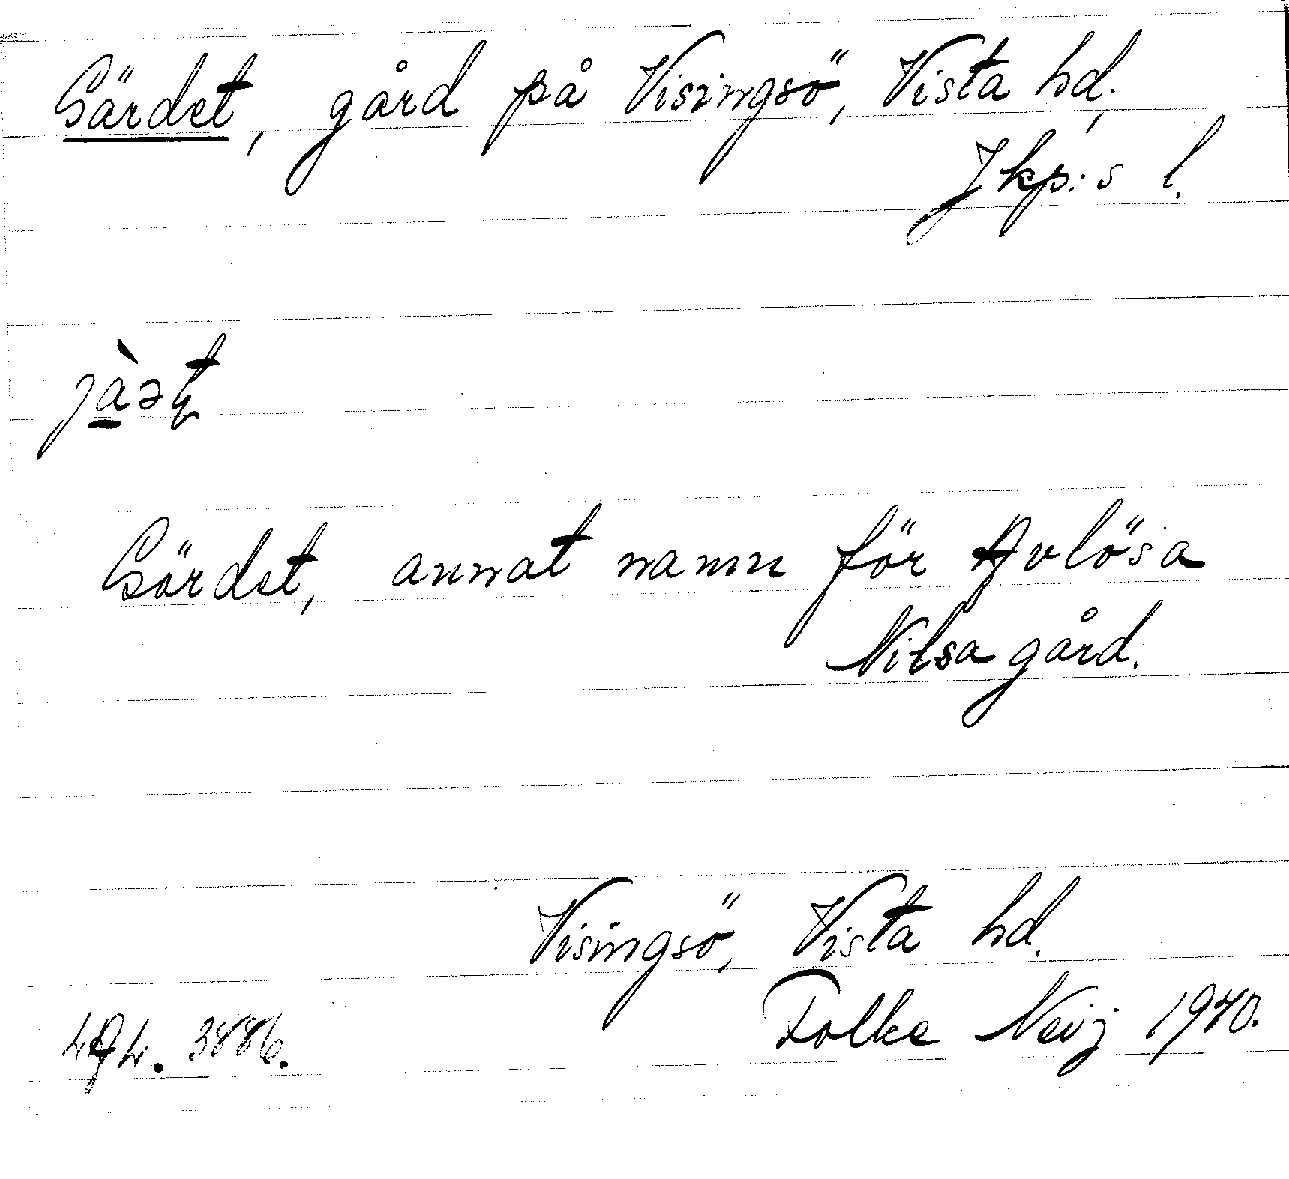 Gärdet, gård på Visingsö, Vista hd,
Jkp:s l.
jàət
Gärdet, annat namn för Avlösa
Nilsagård.
Visingsö, Vista hd.
3886. Folke Neij 1940.